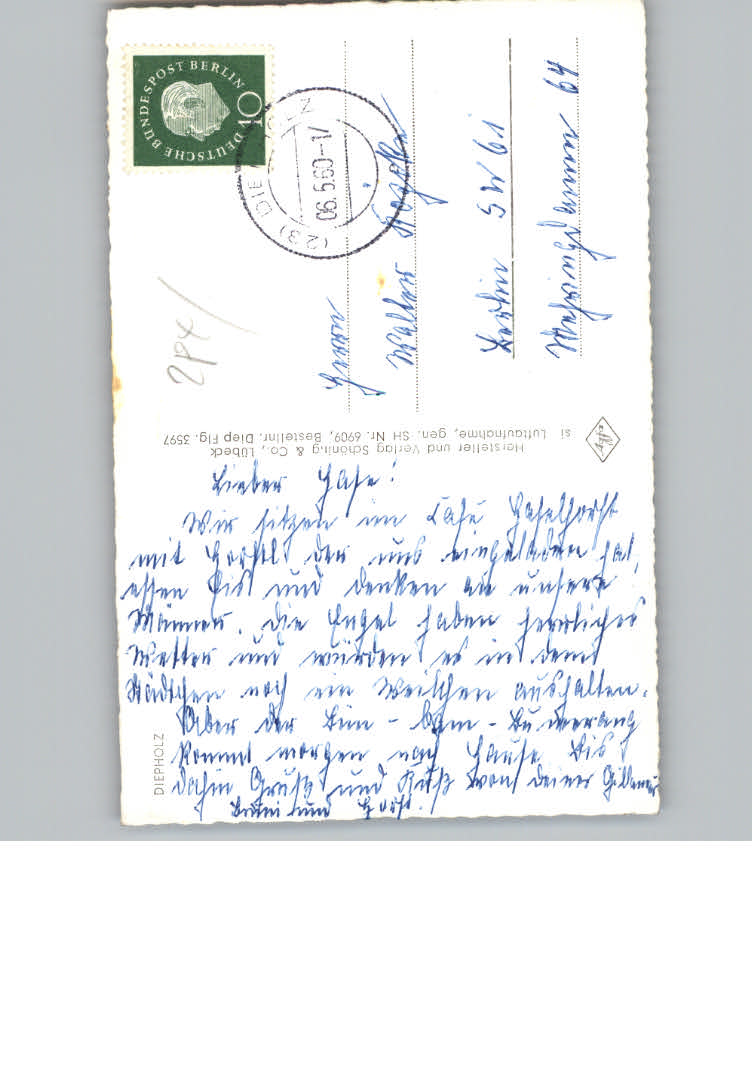 DEUTSCHE BUNDESPOST BERLIN
10
(23) DIEPHOLZ
06.5.60-17
Herrn
Walter
Berlin SW 61
Mehringdamm 64
Agfa
Hersteller und Verlag Schöning & Co., Lübeck
si Luftaufnahme, gen. SH Nr. 6909, Bestellnr. Diep Flg. 3597
DIEPHOLZ
Lieber Hase!
Wir sitzen im Café Haselhorst
mit Horstl der uns eingeladen hat,
essen Eis und denken an unsere
Männer. Die Engel haben herrliches
Wetter und würden es in dem
Städtchen noch ein Weilchen aushalten.
Aber der Bim - bam - 
kommt morgen nach Hause. Bis
dahin Gruß und Kuß von deiner
und Horst.